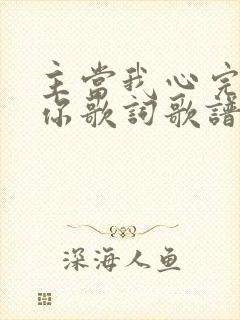 主當我心完
你歌詞歌譜
深海人鱼